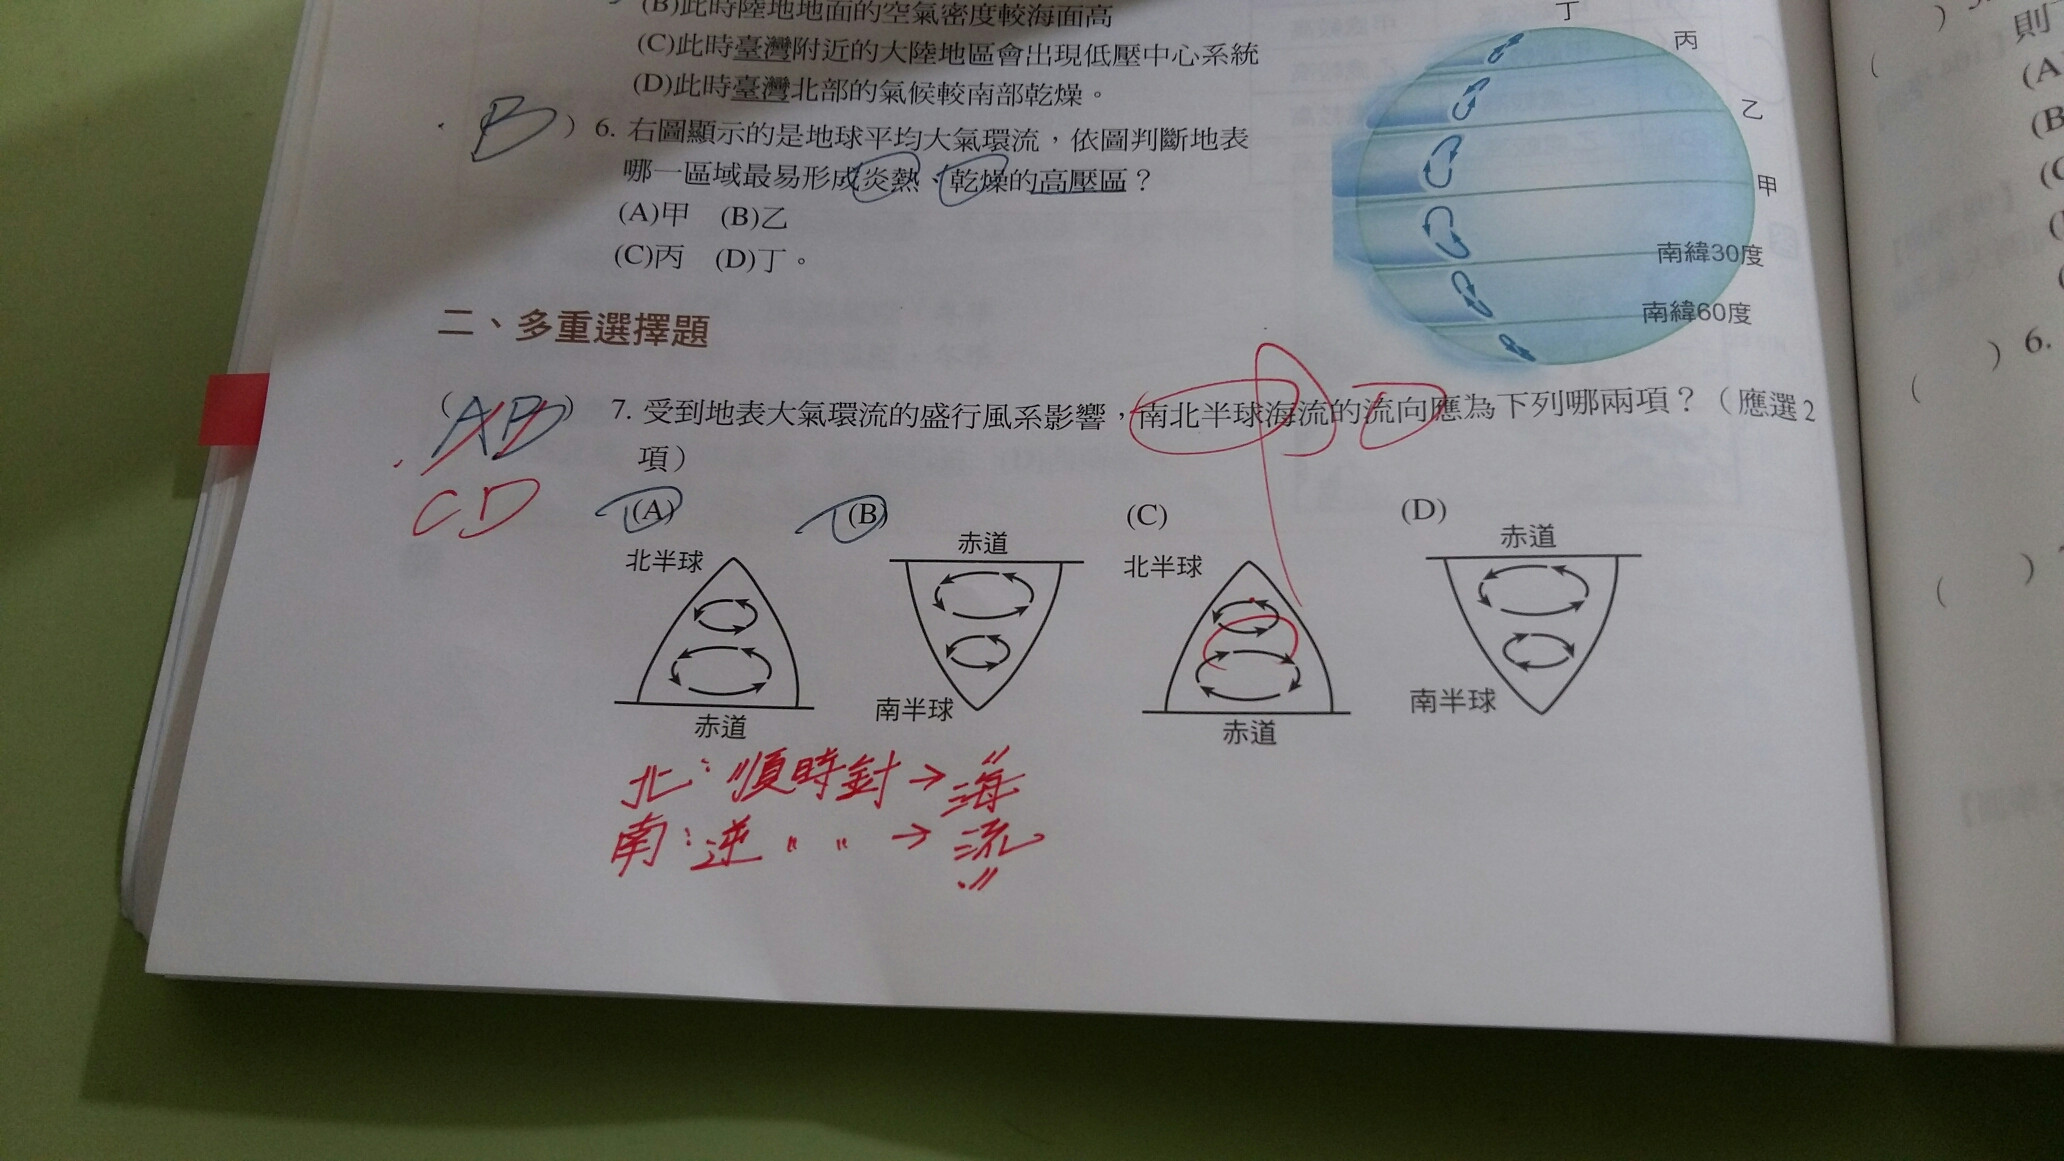 (B)此時陸地地面的空氣密度較海面高
(C)此時臺灣附近的大陸地區會出現低壓中心系統
(D)此時臺灣北部的氣候較南部乾燥。
B ) 6. 右圖顯示的是地球平均大氣環流,依圖判斷地表
哪一區域最易形成炎熱、乾燥的高壓區?
(A)甲 (B)乙
(C)丙 (D)丁。
丁
丙
乙
甲
南緯30度
南緯60度
二、多重選擇題
( AB ) 7. 受到地表大氣環流的盛行風系影響,南北半球海流的流向應為下列哪兩項?(應選2
項)
CD
(A) (B) (C) (D)
北半球
赤道
赤道
南半球
北半球
赤道
赤道
南半球
北:順時針→海
南:逆〃〃→流
則
(A
(B
(C
(
) 6.
(
( )